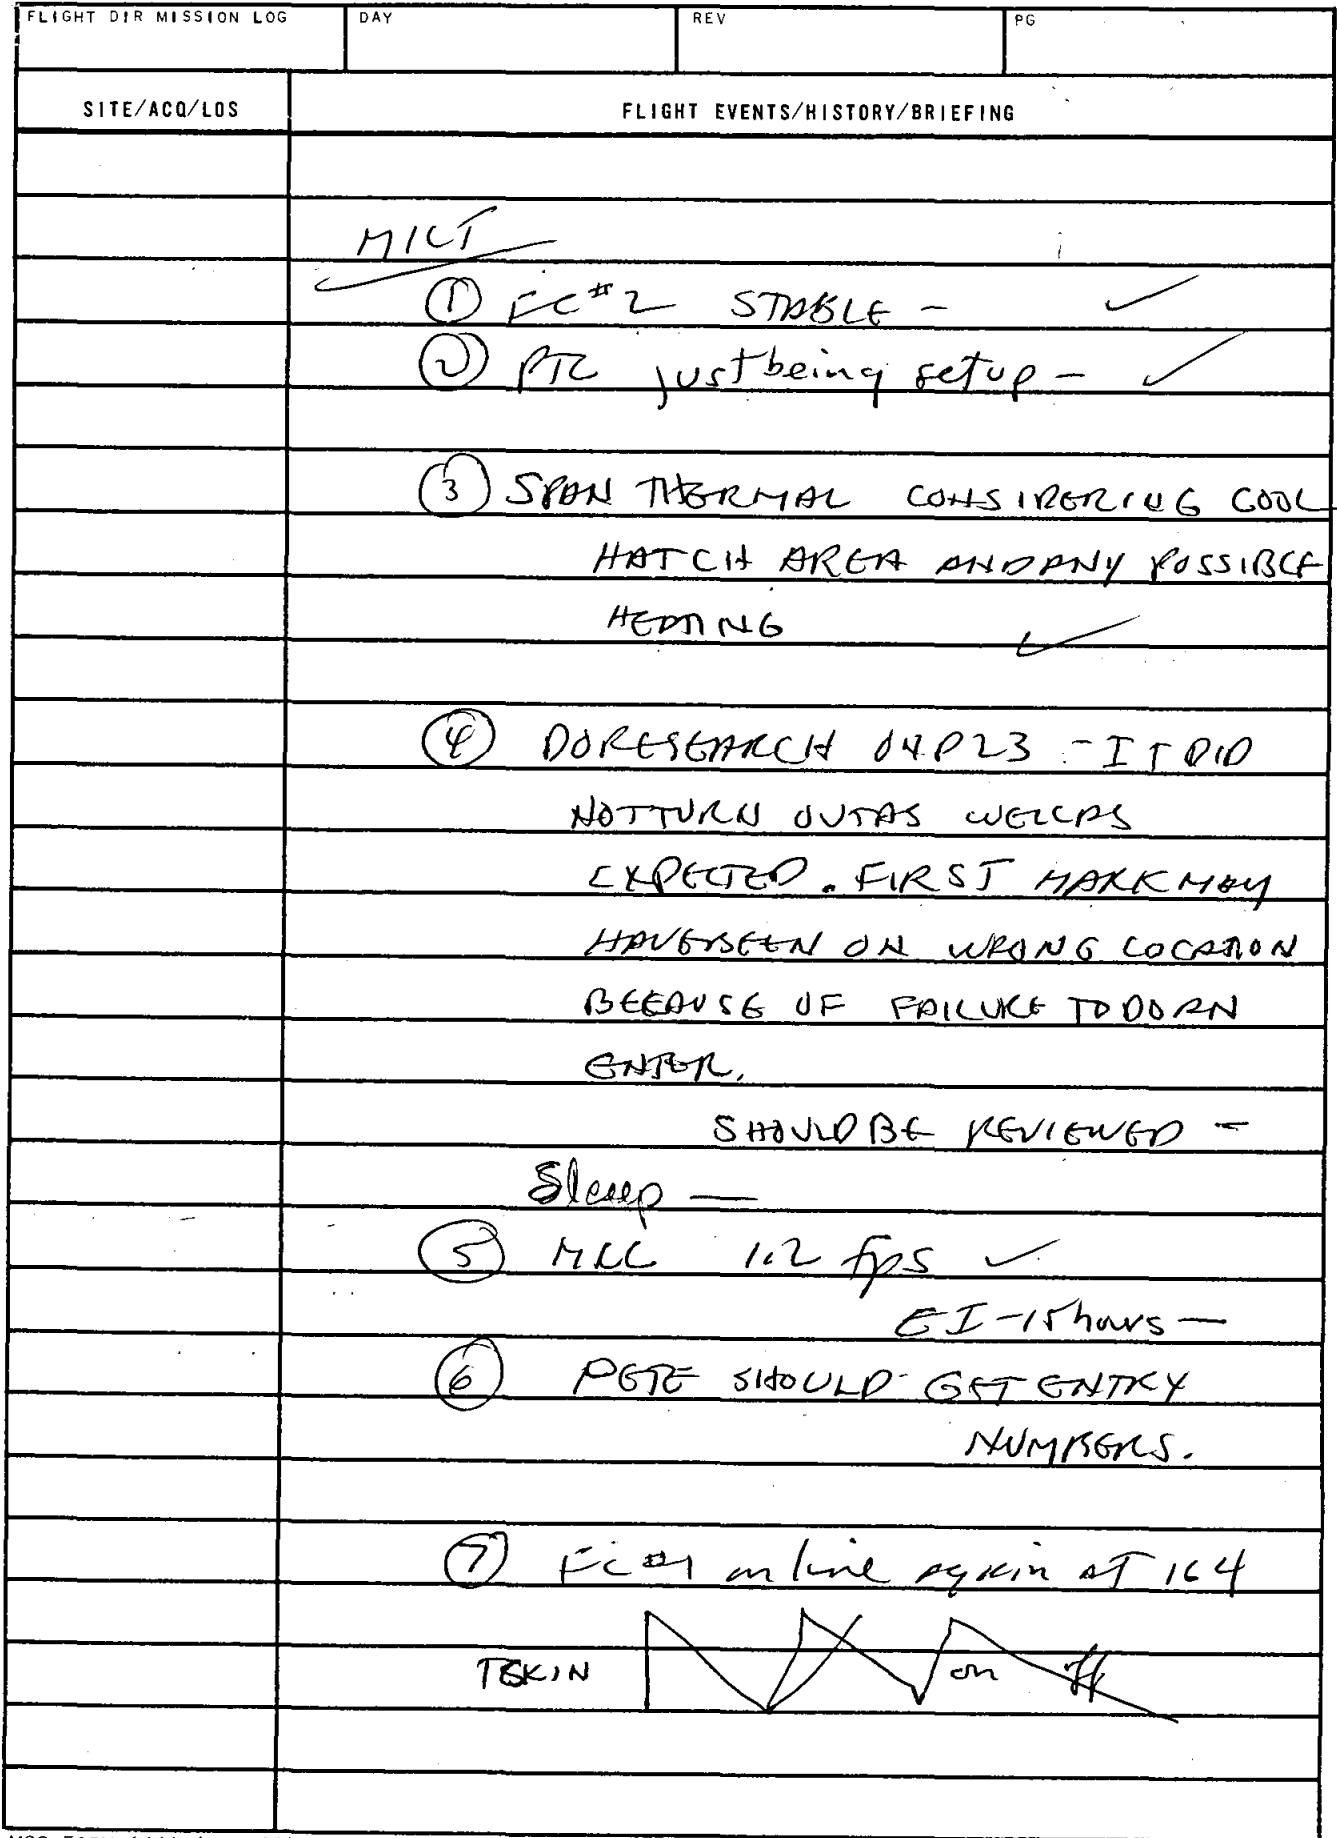 FLIGHT DIR MISSION LOG DAY REV PG
SITE/ACQ/LOS FLIGHT EVENTS/HISTORY/BRIEFING
MILT
① FC #2 STABLE - ✓
② PTC just being setup - ✓
③ SPAN THERMAL CONSIDERING COOL
HATCH AREA AND ANY POSSIBLE
HEATING ✓
④ DO RESEARCH ON P23 - IT DID
NOT TURN OUT AS WELL AS
EXPECTED. FIRST MARK MAY
HAVE BEEN ON WRONG LOCATION
BECAUSE OF FAILURE TO DO AN
ENTER.
SHOULD BE REVIEWED -
Sleep —
⑤ MCC 1.2 fps ✓
EI - 15 hours —
⑥ PETE SHOULD GET ENTRY
NUMBERS.
⑦ FC #1 on line again at 164
TSKIN on off